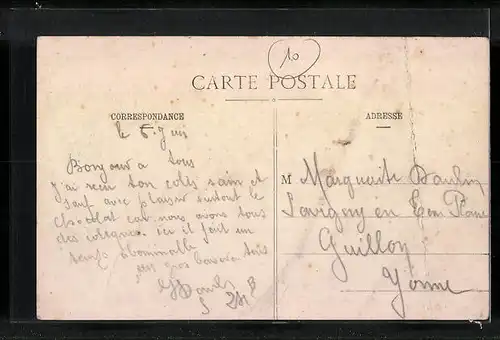 10
CARTE POSTALE
CORRESPONDANCE
ADRESSE
le 5 Juin
Bonjour a tous
J'ai reçu ton colis sain et
sauf avec plaisir surtout le
chocolat car nous avons tous
des coliques ici il fait un
temps abominable
gros baisers
M Marguerite
Savigny en
Guillon
Yonne